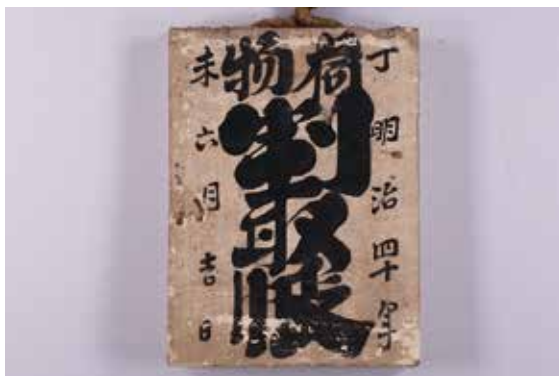 丁明治四十年
荷物
判取帳
未六月吉日